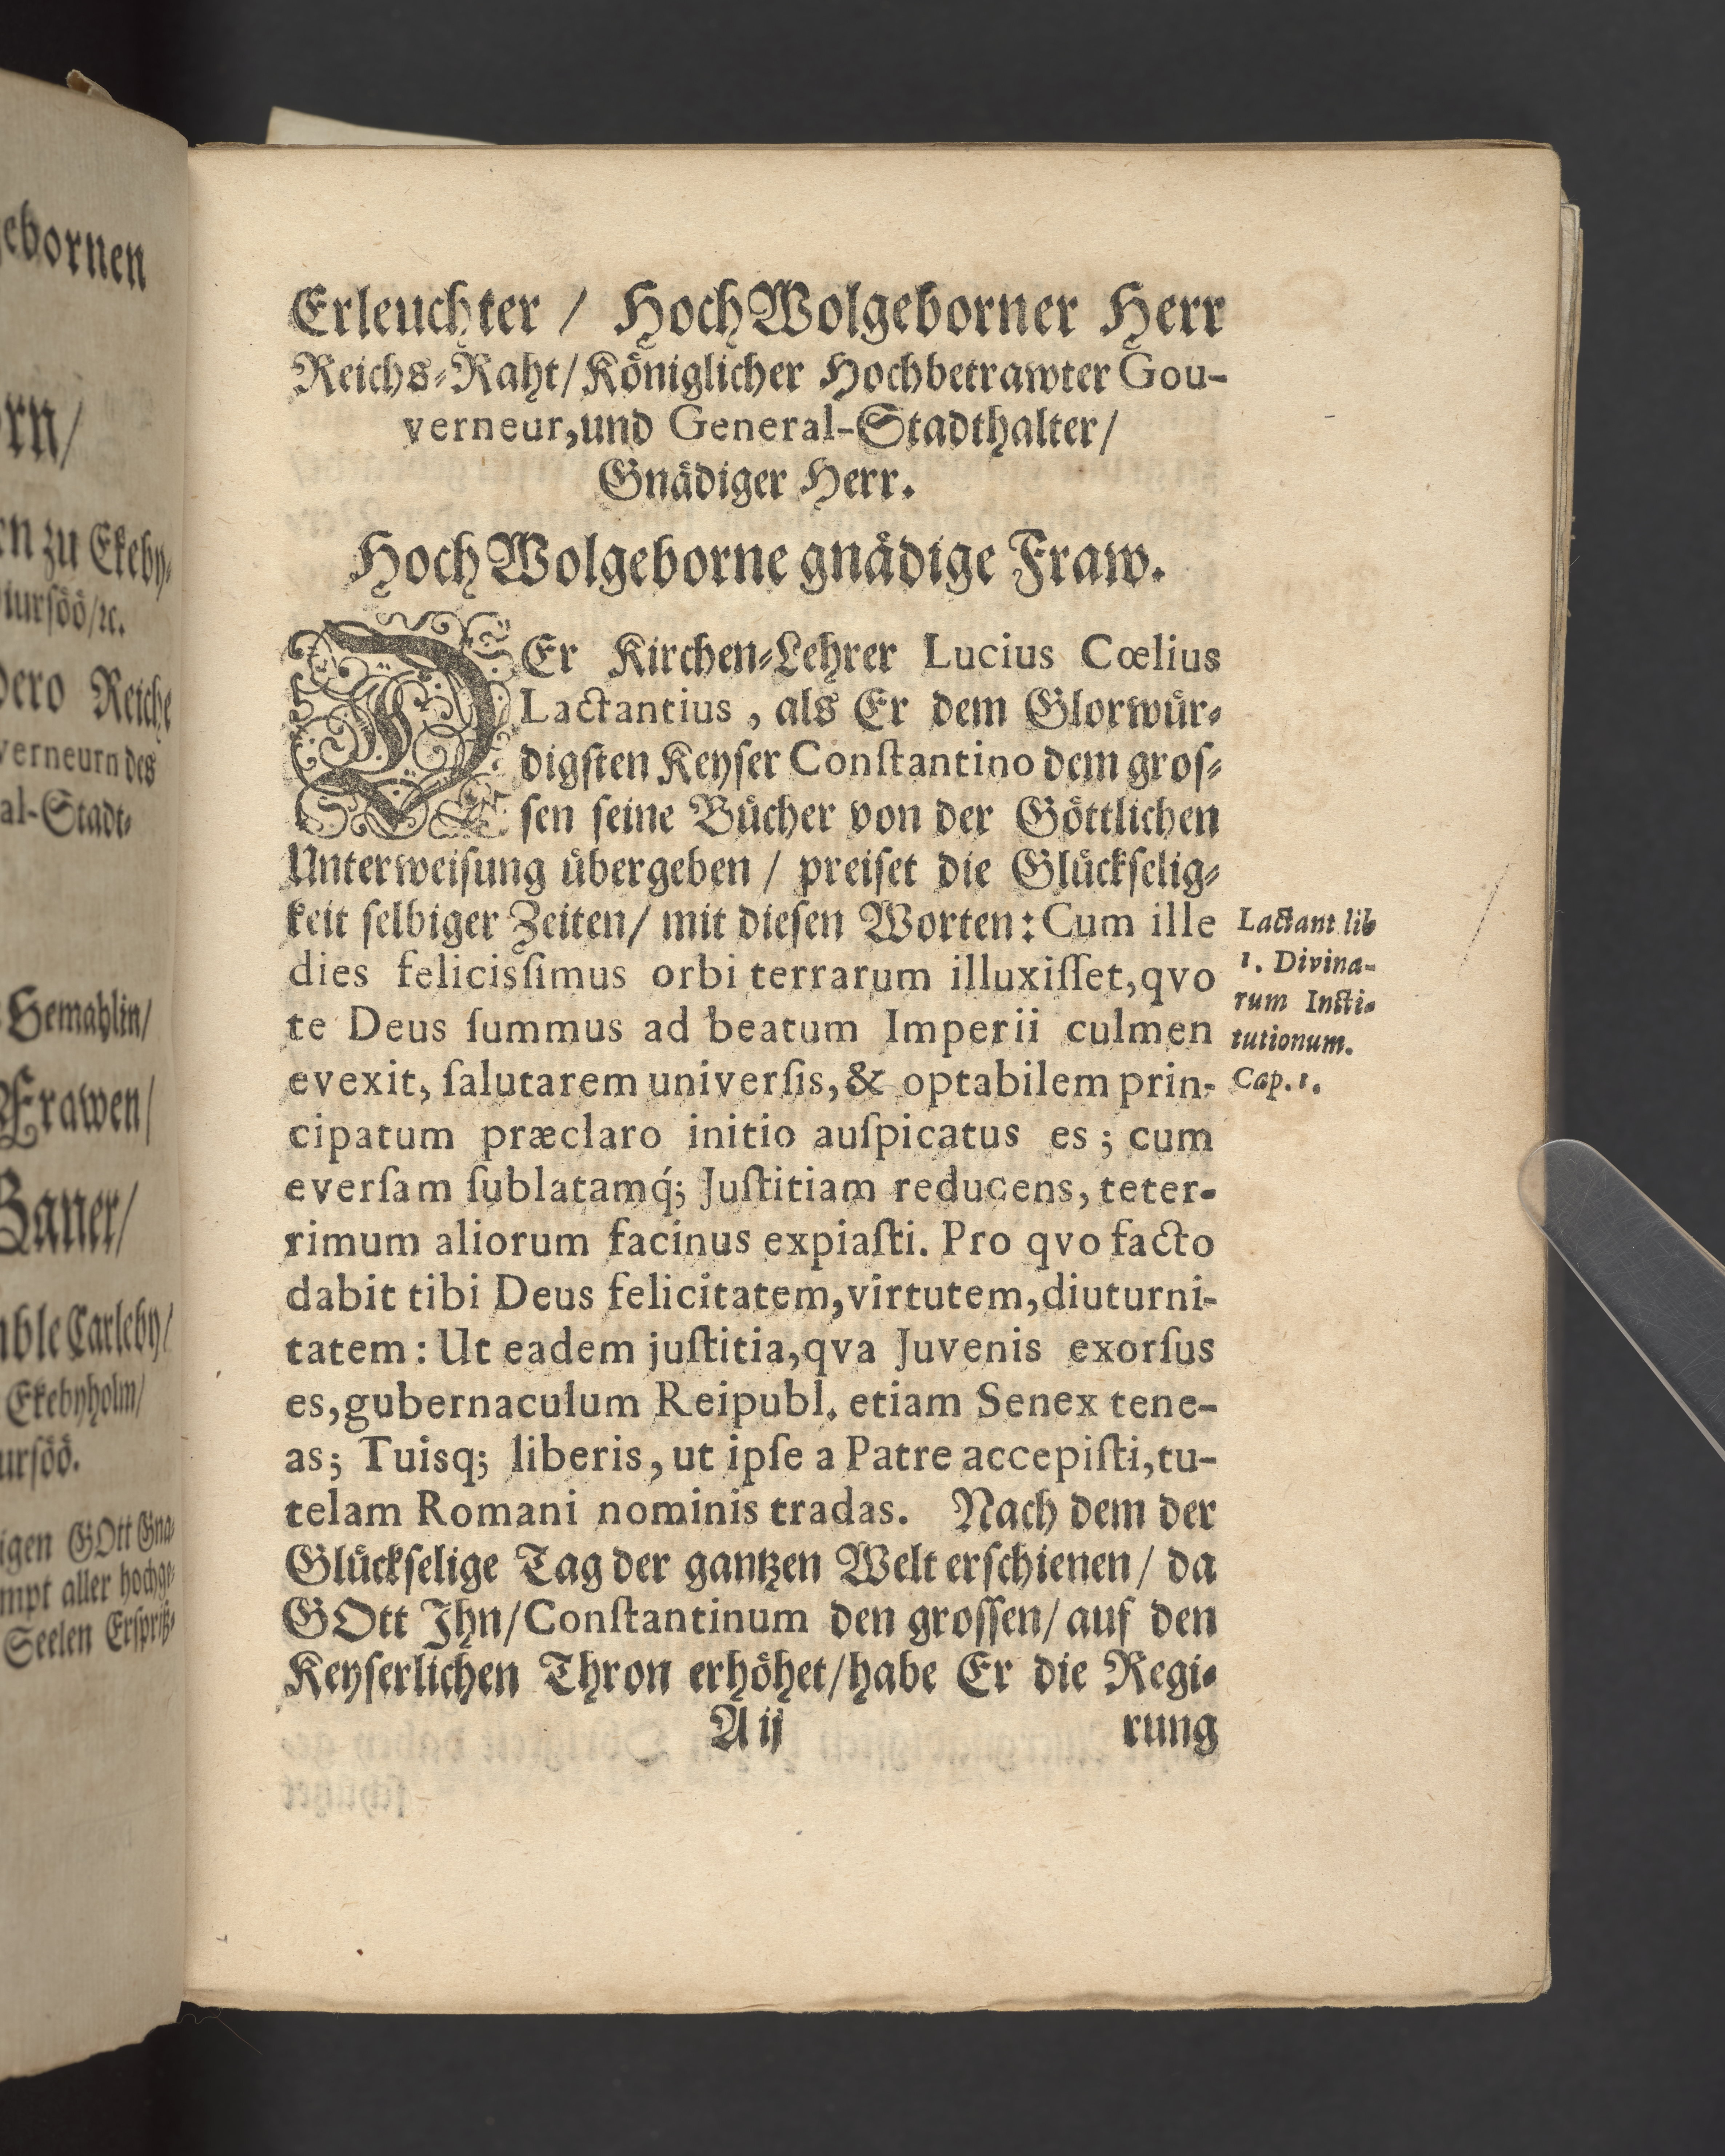 ebornen
rn/
en zu Ekeby-
iursöö/ꝛc.
dero Reiche
verneurn des
al-Stadt-
Gemahlin/
Frawen/
Baner/
ble Carleby/
Ekebyholm/
ursöö.
igen GOtt Gna-
mpt aller hochge-
Seelen Ersprieß-
Erleuchter / HochWolgeborner Herr
Reichs-Raht/Königlicher Hochbetrawter Gou-
verneur, und General-Stadthalter/
Gnädiger Herr.
HochWolgeborne gnädige Fraw.
DEr Kirchen-Lehrer Lucius Cœlius
Lactantius, als Er dem Glorwür-
digsten Keyser Conſtantino dem gros-
sen seine Bücher von der Göttlichen
Unterweisung übergeben / preiset die Glückselig-
keit selbiger Zeiten/ mit diesen Worten: Cum ille
dies felicisſimus orbi terrarum illuxiſſet, qvo
te Deus ſummus ad beatum Imperii culmen
evexit, ſalutarem univerſis, & optabilem prin-
cipatum præclaro initio auſpicatus es; cum
everſam ſublatamq́; Juſtitiam reducens, teter-
rimum aliorum facinus expiaſti. Pro qvo facto
dabit tibi Deus felicitatem, virtutem, diuturni-
tatem: Ut eadem juſtitia, qva Juvenis exorſus
es, gubernaculum Reipubl. etiam Senex tene-
as; Tuisq; liberis, ut ipſe a Patre accepiſti, tu-
telam Romani nominis tradas. Nach dem der
Glückselige Tag der gantzen Welt erschienen / da
GOtt Ihn/Conſtantinum den grossen/ auf den
Keyserlichen Thron erhöhet/habe Er die Regi-
A ij rung
Lactant lib
1. Divina-
rum Insti-
tutionum.
Cap. 1.